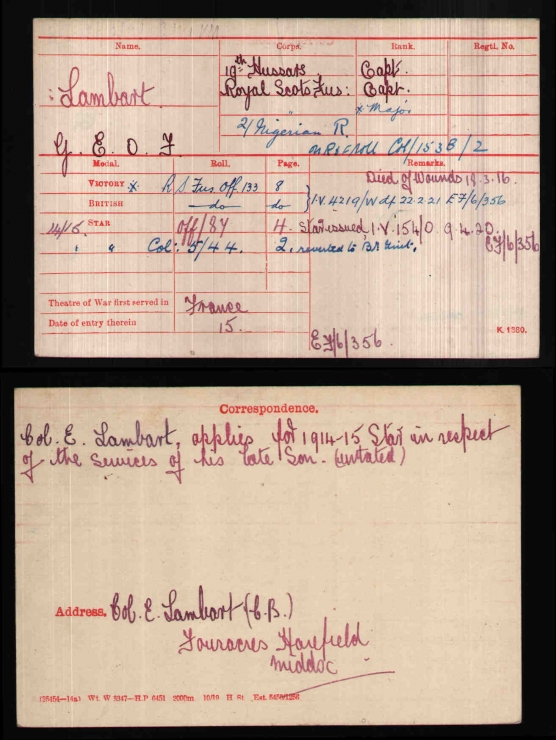 Name. Corps. Rank. Regtl. No.
Lambart 19th Hussars Capt.
Royal Scots Fus: Capt.
x Major
G. E. O. F. 2/Nigerian R.
on R. of roll Col/153B/2
Medal. Roll. Page. Remarks.
VICTORY x R S Fus. Off. 133 8 Died of Wounds 19.3.16.
BRITISH do do I.V. 4219/W df 22.2.21 EF/6/356
14/15. STAR Off/87 4. Star issued I.V. 154/0. 9.4.20.
" " Col: 5/44. 2. reverted to Br. Unit. EF/6/356
Theatre of War first served in France
Date of entry therein 15.
EF/6/356.
K. 1380.
Correspondence.
Col. E. Lambart, applies for 1914-15 Star in respect
of the services of his late Son. (untated)
Address. Col. E. Lambart (C.B.)
Fouracres Harefield
Middx
(36454—14a) Wt. W 3347—H.P. 6451 2000m 10/19 H. St. Est.